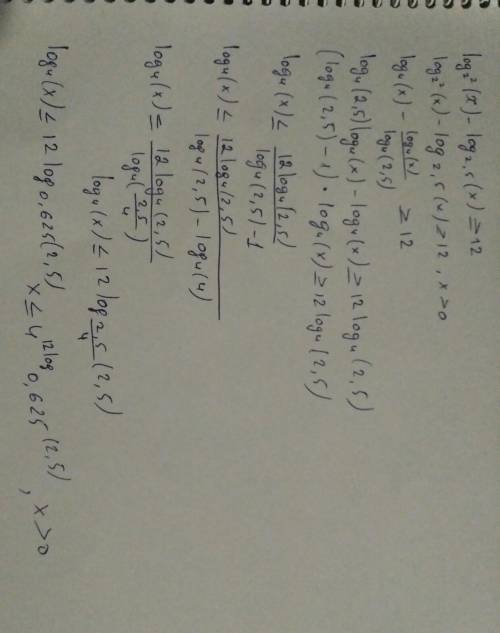 log₂²(x) - log₂,₅(x) ≥ 12
log₂²(x) - log₂,₅(x) ≥ 12, x > 0
log₄(x) - log₄(x)/log₄(2,5) ≥ 12
log₄(2,5) log₄(x) - log₄(x) ≥ 12 log₄(2,5)
(log₄(2,5) - 1) · log₄(x) ≥ 12 log₄(2,5)
log₄(x) ≤ 12 log₄(2,5)/log₄(2,5) - 1
log₄(x) ≤ 12 log₄(2,5)/log₄(2,5) - log₄(4)
log₄(x) ≤ 12 log₄(2,5)/log₄(2,5/4)
log₄(x) ≤ 12 log 2,5/4 (2,5)
log₄(x) ≤ 12 log 0,625 (2,5)
x ≤ 4^12 log 0,625 (2,5), x > 0